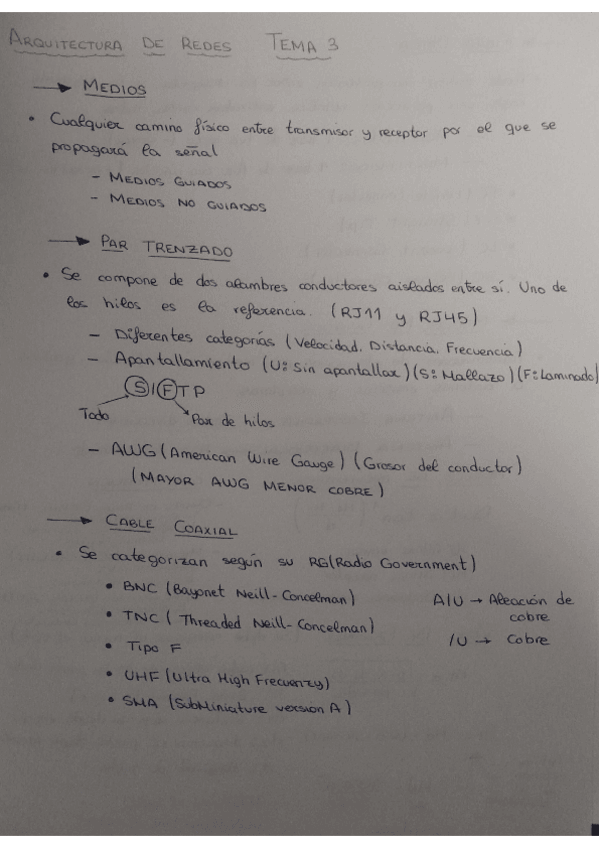 ARQUITECTURA DE REDES TEMA 3
→ MEDIOS
• Cualquier camino físico entre transmisor y receptor por el que se
propagará la señal
- MEDIOS GUIADOS
- MEDIOS NO GUIADOS
→ PAR TRENZADO
• Se compone de dos alambres conductores aislados entre sí. Uno de
los hilos es la referencia. (RJ11 y RJ45)
- Diferentes categorías (Velocidad, Distancia, Frecuencia)
- Apantallamiento (U: Sin apantallar) (S: Mallazo) (F: Laminado)
S/FTP
Todo Par de hilos
- AWG (American Wire Gauge) (Grosor del conductor)
(MAYOR AWG MENOR COBRE)
→ CABLE COAXIAL
• Se categorizan según su RG (Radio Government)
• BNC (Bayonet Neill-Concelman)
• TNC (Threaded Neill-Concelman)
• Tipo F
• UHF (Ultra High Frecuenzy)
• SMA (SubMiniature version A)
A/U → Aleación de
cobre
/U → Cobre